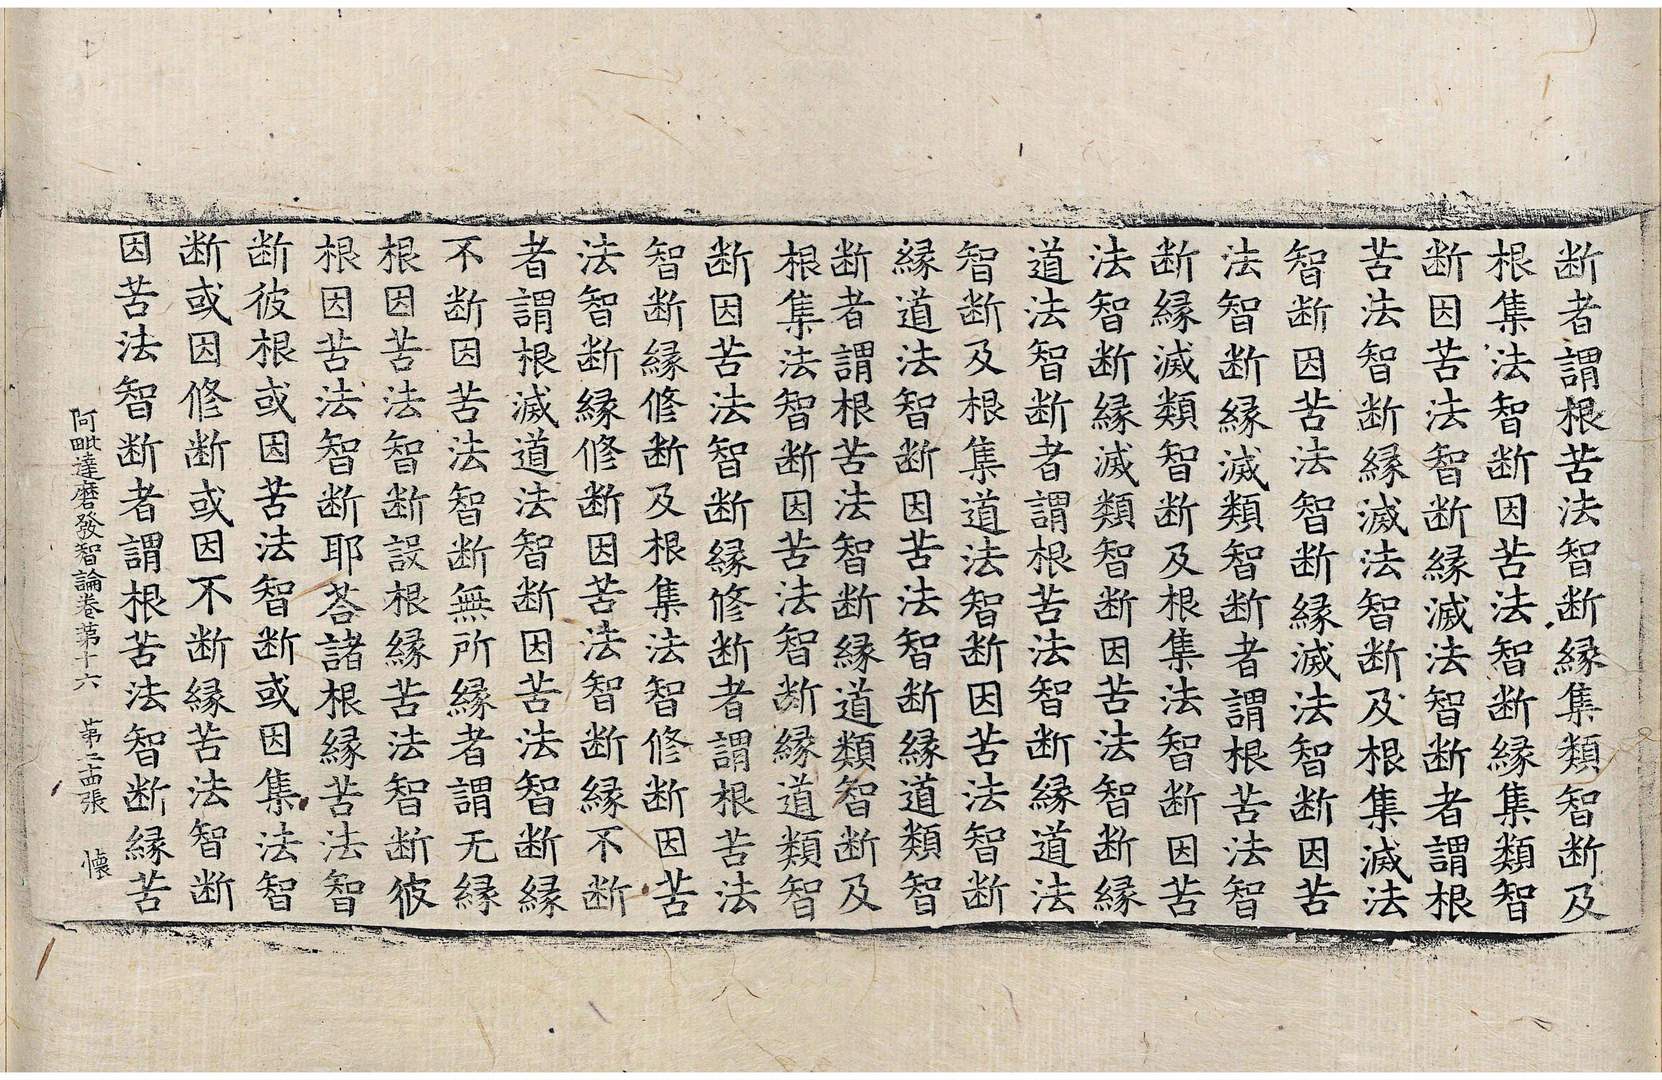 断者謂根苦法智断縁集類智断及
根集法智断因苦法智断縁集類智
断因苦法智断縁滅法智断者謂根
苦法智断縁滅法智断及根集滅法
智断因苦法智断縁滅法智断因苦
法智断縁滅類智断者謂根苦法智
断縁滅類智断及根集法智断因苦
法智断縁滅類智断因苦法智断縁
道法智断者謂根苦法智断縁道法
智断及根集道法智断因苦法智断
縁道法智断因苦法智断縁道類智
断者謂根苦法智断縁道類智断及
根集法智断因苦法智断縁道類智
断因苦法智断縁修断者謂根苦法
智断縁修断及根集法智修断因苦
法智断縁修断因苦法智断縁不断
者謂根滅道法智断因苦法智断縁
不断因苦法智断無所縁者謂无縁
根因苦法智断設根縁苦法智断彼
根因苦法智断耶荅諸根縁苦法智
断彼根或因苦法智断或因集法智
断或因修断或因不断縁苦法智断
因苦法智断者謂根苦法智断縁苦
阿毗達磨發智論卷第十六 第二四張 懷